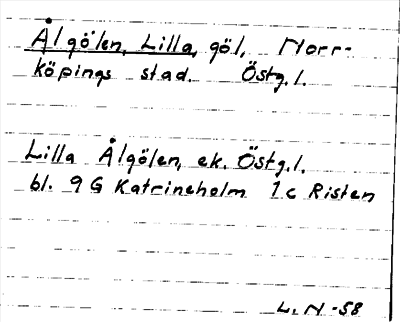 Ålgölen, Lilla, göl, Norr-
köpings stad. Östg.l.
Lilla Ålgölen, ek. Östg.l.
bl. 9 G Katrineholm 1c Risten
L. N -58